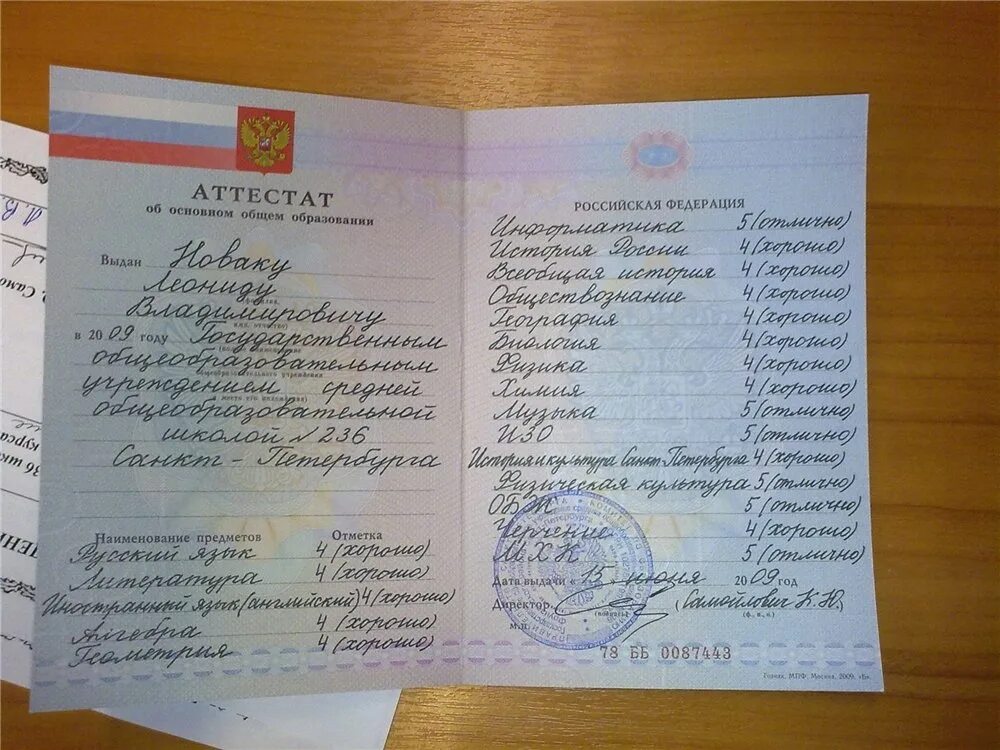 АТТЕСТАТ
об основном общем образовании
Выдан Новаку
Леониду
Владимировичу
в 2009 году Государственным
общеобразовательным
учреждением средней
общеобразовательной
школой №236
Санкт-Петербурга
Наименование предметов Отметка
Русский язык 4 (хорошо)
Литература 4 (хорошо)
Иностранный язык (английский) 4 (хорошо)
Алгебра 4 (хорошо)
Геометрия 4 (хорошо)
РОССИЙСКАЯ ФЕДЕРАЦИЯ
Информатика 5 (отлично)
История России 4 (хорошо)
Всеобщая история 4 (хорошо)
Обществознание 4 (хорошо)
География 4 (хорошо)
Биология 4 (хорошо)
Физика 4 (хорошо)
Химия 4 (хорошо)
Музыка 5 (отлично)
ИЗО 5 (отлично)
История и культура Санкт-Петербурга 4 (хорошо)
Физическая культура 5 (отлично)
ОБЖ 5 (отлично)
Черчение 4 (хорошо)
МХК 5 (отлично)
Дата выдачи «15» июня 2009 год
Директор (Самойлович К.Ю.)
(подпись) (ф., и., о.)
м.п.
78 ББ 0087443
МПФ. Москва, 2009, «Б».